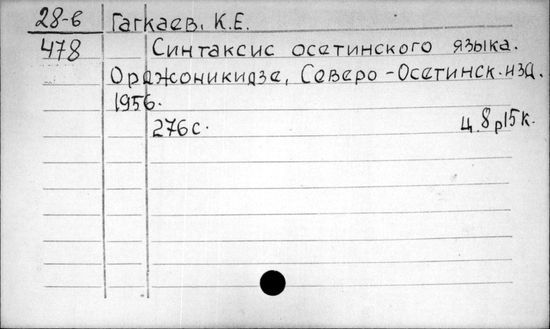 28-6 Гагкаев, К.Е.
478 Синтаксис осетинского языка.
Орджоникидзе, Северо-Осетинск.изд.
1956.
276с. ц. 8р15к.